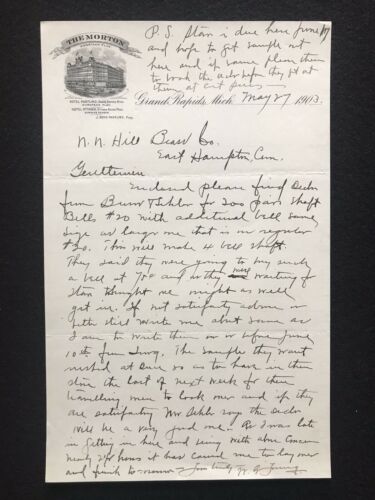 P.S. Stan is due here June
and hope to get sample out
here and if same please them
to book the order before they get
at
THE MORTON
EUROPEAN PLAN
HOTEL PANTLIND,
EUROPEAN PLAN
HOTEL OTTAWA,
J. BOYD PANTLIND, Prop.
Grand Rapids, Mich. May 27 1903.
N. N. Hill Brass Co.
East Hampton, Conn.
Gentlemen
Enclosed please find Order
from for 200 pair Shaft
Bells #20 with additional bell same
size as large one that is on regular
#20. This will make 4 bell shaft.
They said they were going to buy such
a bell at 75¢ and as they were waiting for
Stan thought we might as well
get in. If not satisfactory advise or
better still write me about same as
I am to write them on or before June
10th from . The sample they want
rushed at once so as to have in their
store the last of next week for their
travelling men to look over and if they
are satisfactory Mr says the order
will be a very good one. As I was late
in getting in here and being with above Concern
nearly 2½ hours it has caused me to lay over
and finish tomorrow Yours truly